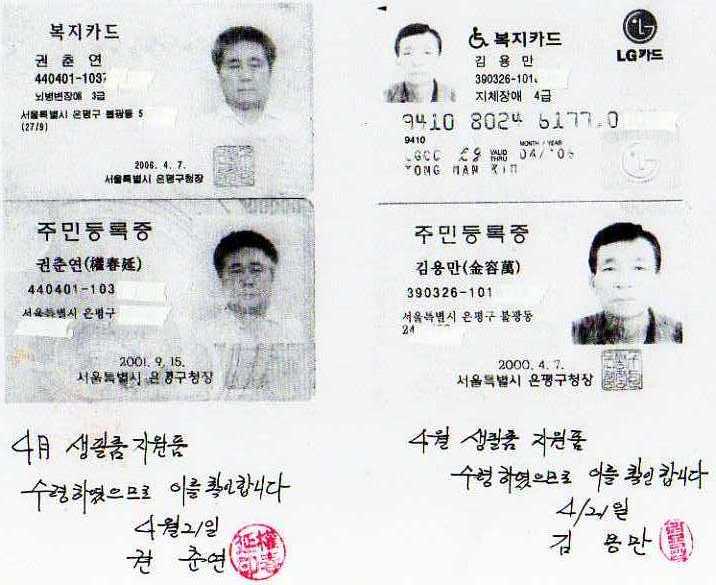 복지카드
권 춘 연
440401-103
뇌병변장애 3급
서울특별시 은평구 불광동 5
(27/9)
2006. 4. 7.
서울특별시 은평구청장
주민등록증
권춘연(權春延)
440401-103
서울특별시 은평구
2001. 9. 15.
서울특별시 은평구청장
4月 생필품 지원품
수령하였으므로 이를 확인합니다
4월 21일
권 춘연
權春延印
복지카드
김 용 만
390326-101
지체장애 4급
LG카드
9410 8024 6177 0
9410
VALID THRU
MONTH / YEAR
YONG MAN KIM
주민등록증
김용만(金容萬)
390326-101
서울특별시 은평구 불광동
24
2000. 4. 7.
서울특별시 은평구청장
4월 생필품 지원품
수령하였으므로 이를 확인합니다
4/21일
김 용만